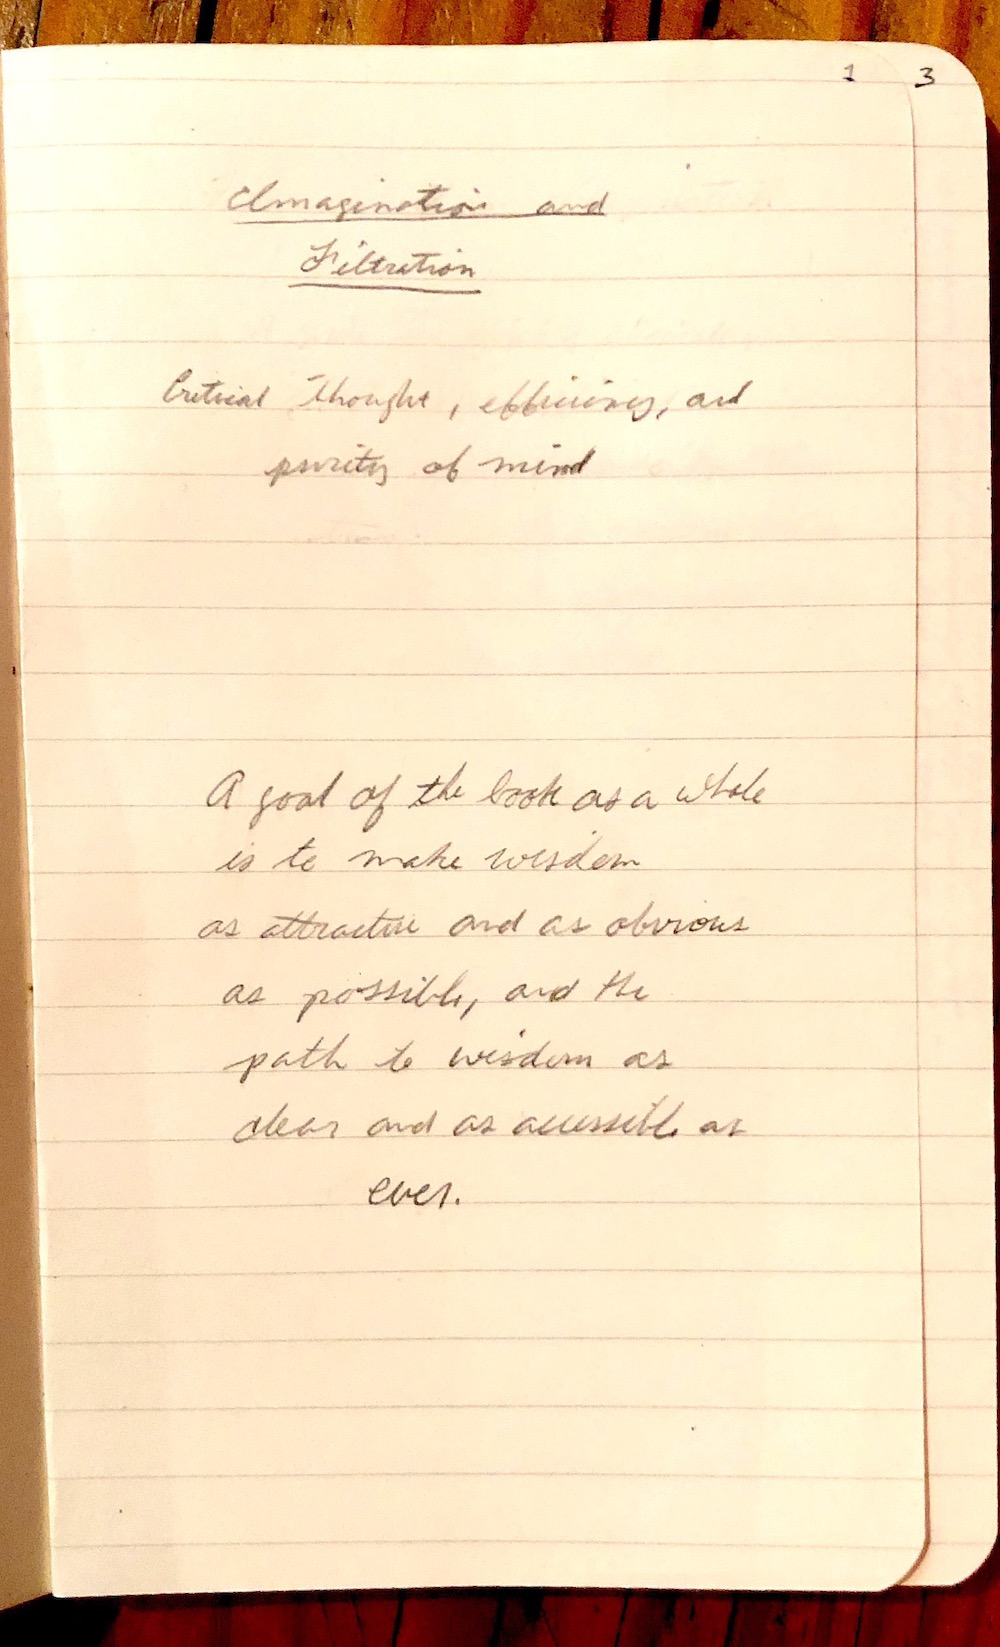 1 3
Imagination and
Filtration
Critical thought, efficiency, and
purity of mind
A goal of the book as a whole
is to make wisdom
as attractive and as obvious
as possible, and the
path to wisdom as
clear and as accessible as
ever.